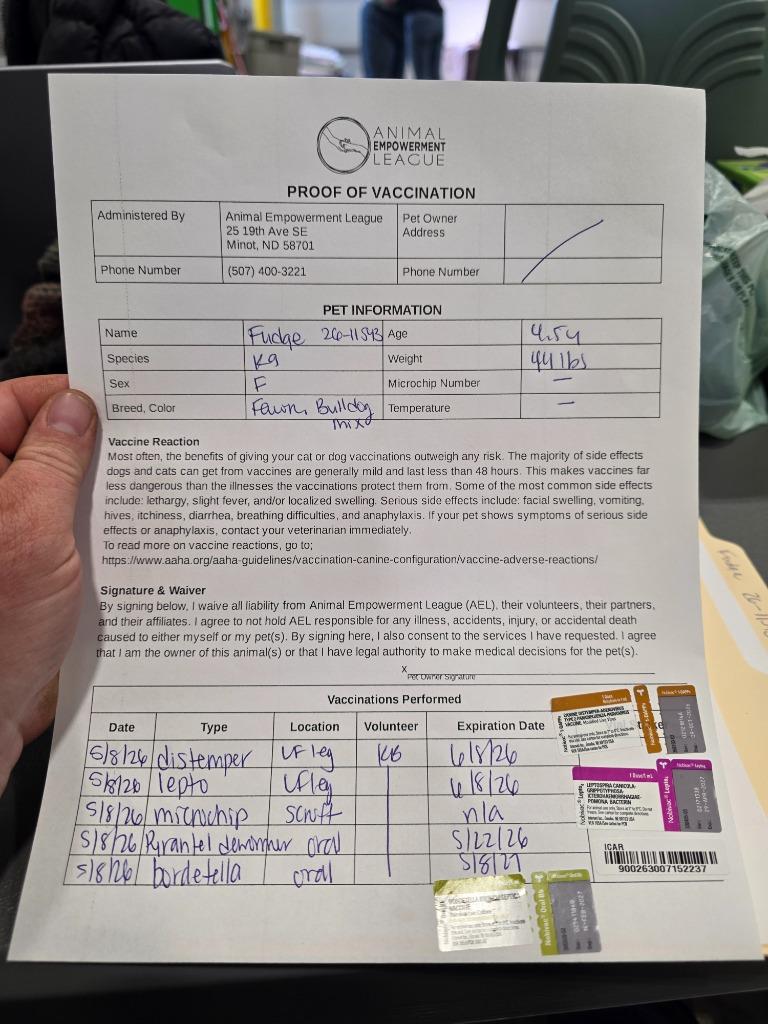 ANIMAL
EMPOWERMENT
LEAGUE
PROOF OF VACCINATION
Administered By
Animal Empowerment League
25 19th Ave SE
Minot, ND 58701
Pet Owner
Address
Phone Number
(507) 400-3221
Phone Number
PET INFORMATION
Name Fudge 26-11543 Age 4.5y
Species K9 Weight 44 lbs
Sex F Microchip Number —
Breed, Color Fawn, Bulldog mix Temperature —
Vaccine Reaction
Most often, the benefits of giving your cat or dog vaccinations outweigh any risk. The majority of side effects
dogs and cats can get from vaccines are generally mild and last less than 48 hours. This makes vaccines far
less dangerous than the illnesses the vaccinations protect them from. Some of the most common side effects
include: lethargy, slight fever, and/or localized swelling. Serious side effects include: facial swelling, vomiting,
hives, itchiness, diarrhea, breathing difficulties, and anaphylaxis. If your pet shows symptoms of serious side
effects or anaphylaxis, contact your veterinarian immediately.
To read more on vaccine reactions, go to;
https://www.aaha.org/aaha-guidelines/vaccination-canine-configuration/vaccine-adverse-reactions/
Signature & Waiver
By signing below, I waive all liability from Animal Empowerment League (AEL), their volunteers, their partners,
and their affiliates. I agree to not hold AEL responsible for any illness, accidents, injury, or accidental death
caused to either myself or my pet(s). By signing here, I also consent to the services I have requested. I agree
that I am the owner of this animal(s) or that I have legal authority to make medical decisions for the pet(s).
X
Pet Owner Signature
Vaccinations Performed
Date Type Location Volunteer Expiration Date
5/8/26 distemper LF leg KB 6/8/26
5/8/26 lepto LF leg 6/8/26
5/8/26 microchip scruff n/a
5/8/26 Pyrantel dewormer oral 5/22/26
5/8/26 bordetella oral 5/8/27
CANINE DISTEMPER-ADENOVIRUS
TYPE 2-PARAINFLUENZA-PARVOVIRUS
VACCINE
1 Dose/1 mL
LEPTOSPIRA CANICOLA-
GRIPPOTYPHOSA-
ICTEROHAEMORRHAGIAE-
POMONA BACTERIN
Nobivac® Lepto
ICAR
900263007152237
BORDETELLA BRONCHISEPTICA
VACCINE
Nobivac® Oral Bb
Fudge 26-11